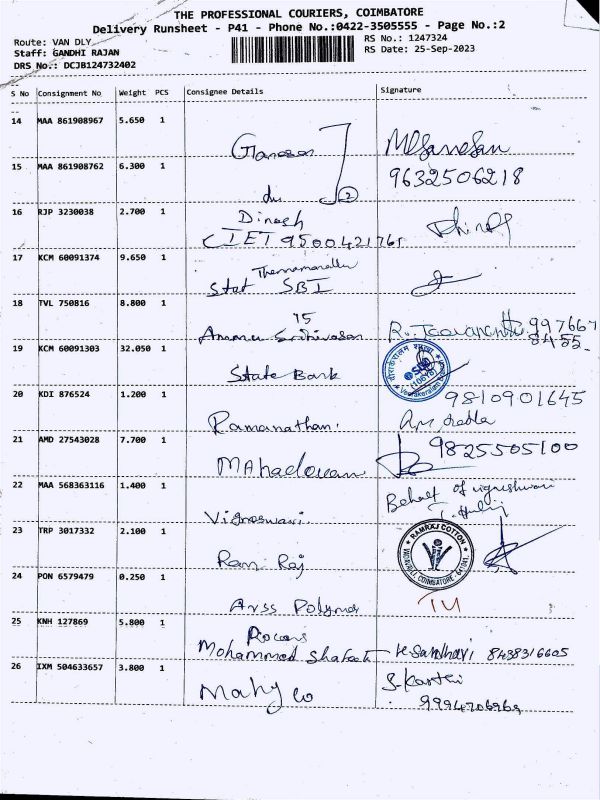 THE PROFESSIONAL COURIERS, COIMBATORE
Delivery Runsheet - P41 - Phone No.:0422-3505555 - Page No.:2
Route: VAN DLY
Staff: GANDHI RAJAN
DRS No.: DCJB124732402
RS No.: 1247324
RS Date: 25-Sep-2023
S No Consignment No Weight PCS Consignee Details Signature
14 MAA 861908967 5.650 1
Ganesan
15 MAA 861908762 6.300 1
9632506218
2
16 RJP 3230038 2.700 1
Dinesh
CIET 9500421761
17 KCM 60091374 9.650 1
Stat SBI
18 TVL 750816 8.800 1
19 KCM 60091303 32.050 1
State Bank
20 KDI 876524 1.200 1
9810901645
Ramanathan.
21 AMD 27543028 7.700 1
9825505100
Mahadevan
22 MAA 568363116 1.400 1
Behalf of vigneshwari
23 TRP 3017332 2.100 1
Ram Raj
RAMRAJ COTTON
COIMBATORE - 641041
24 PON 6579479 0.250 1
Arss Polymer
25 KNH 127869 5.800 1
Mohammed
8438316605
26 IXM 504633657 3.800 1
S. Karthi